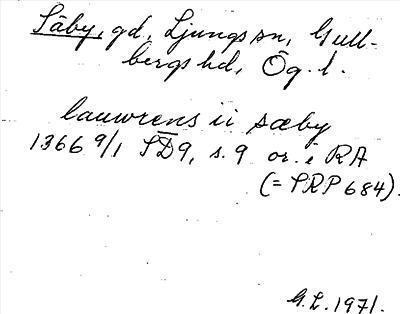 Säby, gd, Ljungs sn, Gull-
bergs hd, Ög. l.
lauwrens ii sæby
1366 9/1 SD9, s. 9 or. i RA
(= SRP 684).
G. L. 1971.